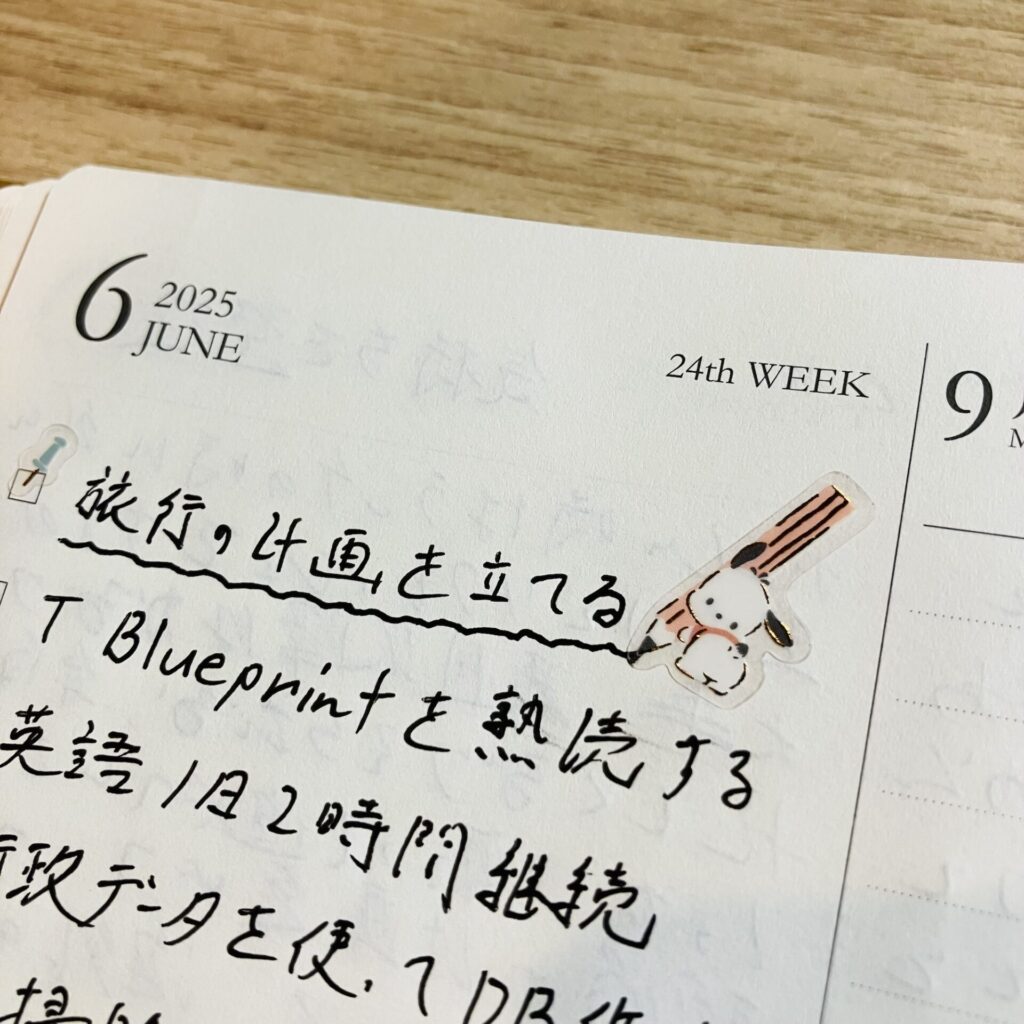 6 2025
JUNE
24th WEEK
9
旅行の計画を立てる
T Blueprintを熟読する
英語1日2時間継続
行政データを使って DB作